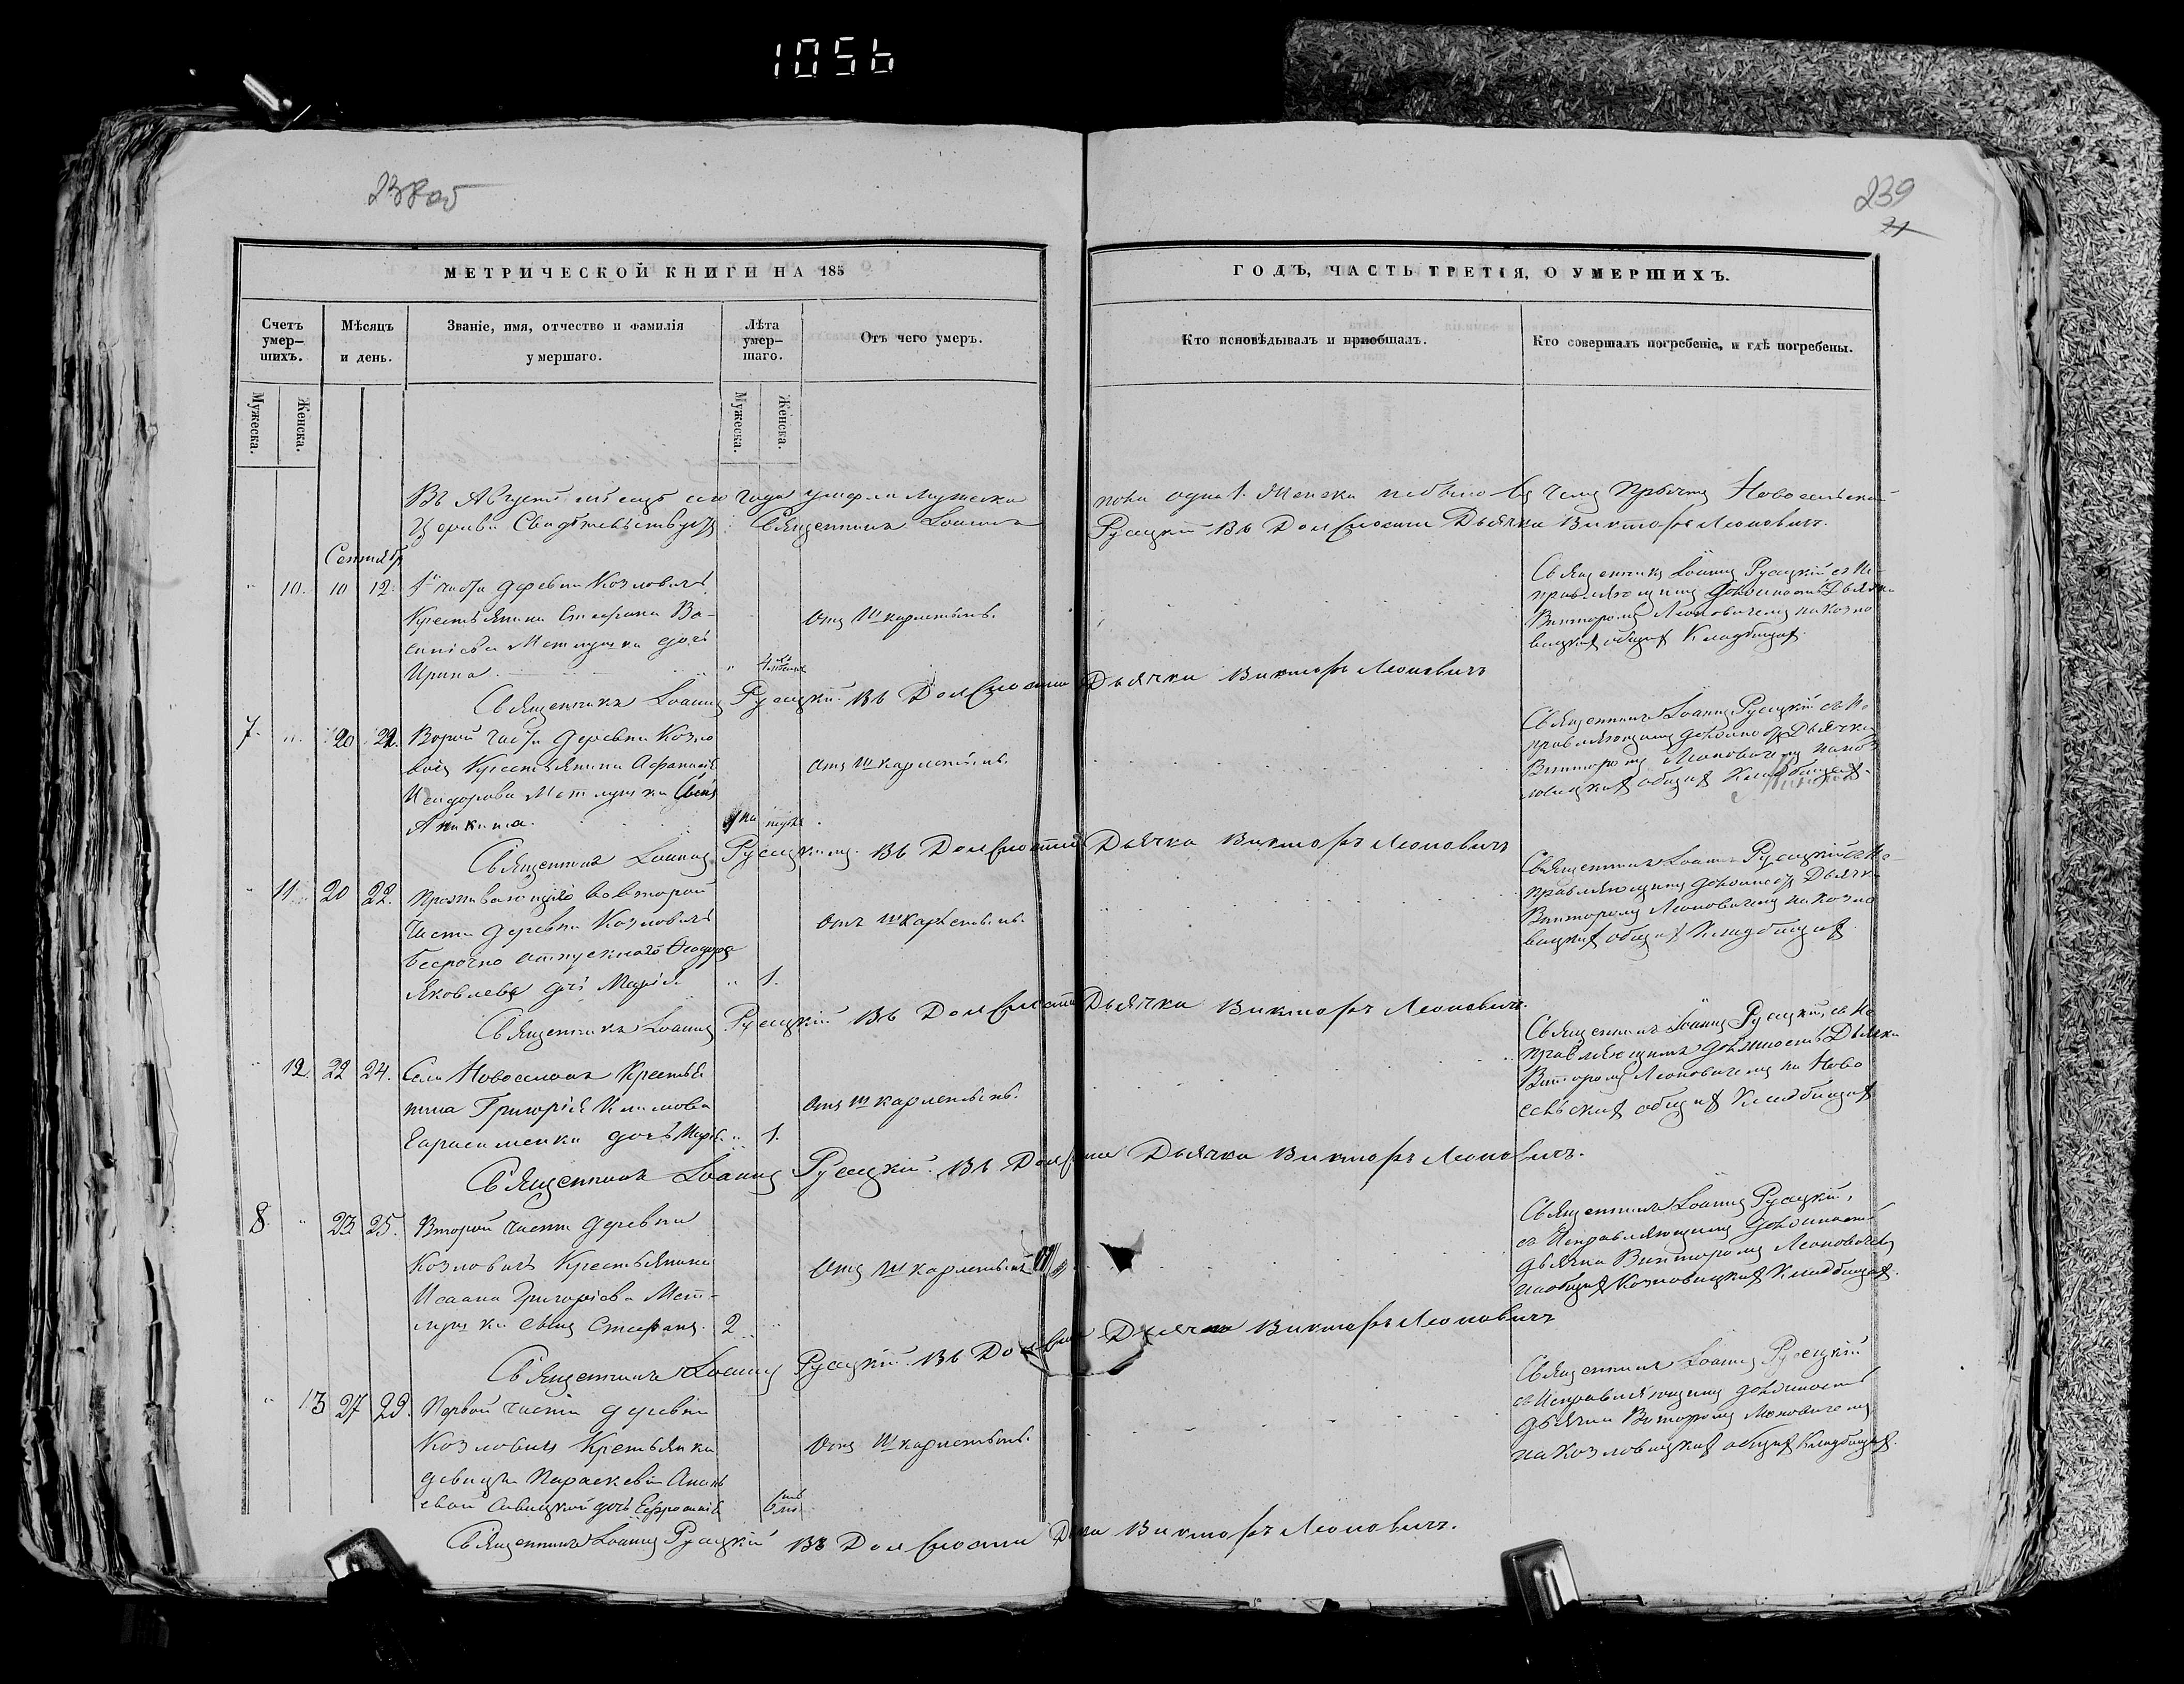 1056
238об
239
71
МЕТРИЧЕСКОЙ КНИГИ НА 185
ГОДЪ, ЧАСТЬ ТРЕТІЯ, О УМЕРШИХЪ.
Счетъ умер-
шихъ.
Мѣсяцъ
и день.
Званіе, имя, отчество и фамилія
умершаго.
Лѣта
умер-
шаго.
Отъ чего умеръ.
Кто исповѣдывалъ и пріобщалъ.
Кто совершалъ погребеніе, и гдѣ погребены.
Мужеска.
Женска.
Мужеска.
Женска.
Въ Августѣ мѣсяцѣ сего года умерли мужеска пола одна 1. Женска небыло Причтъ Новосельской
Церкви Свидѣтельствуетъ Священникъ Іоаннъ Русецкій Въ Должности Дьячка Викторъ Леоновичъ.
Сентябр
10. 10 12. части деревни Козловичъ
Крестьянина Стефана Ва-
дочь
Ирина 4
Отъ Шкарлетынъ.
Священникъ Іоаннъ Русецкій съ Ис-
правляющимъ должность Дьячка
Викторомъ Леоновичемъ на Козло
вицкихъ общихъ Кладбищахъ.
Священникъ Іоаннъ Русецкій Въ Должности Дьячка Викторъ Леоновичъ
7. 20 22. части деревни Козло
Крестьянина
сынъ
Отъ Шкарлетынъ.
Священникъ Іоаннъ Русецкій съ Ис
правляющимъ должность Дьячка
Викторомъ Леоновичемъ на Коз
ловицкихъ общихъ Кладбищахъ.
Священникъ Іоаннъ Русецкій Въ Должности Дьячка Викторъ Леоновичъ
11. 20 22. Проживающаго во второй
части деревни Козловичъ
безсрочно отпускнаго Ѳеодора
Яковлева дочь Марія 1.
Отъ Шкарлетынъ.
Священникъ Іоаннъ Русецкій съ Ис-
правляющимъ должность Дьячка
Викторомъ Леоновичемъ на Козло
вицкихъ общихъ Кладбищахъ
Священникъ Іоаннъ Русецкій Въ Должности Дьячка Викторъ Леоновичъ.
12. 22 24. Села Новоселокъ Крестья
нина Григорія Климова
Герасименки дочь 1.
Отъ Шкарлетынъ.
Священникъ Іоаннъ Русецкій съ Ис
правляющимъ должность Дьячка
Викторомъ Леоновичемъ на Ново
сельскихъ общихъ Кладбищахъ
Священникъ Іоаннъ Русецкій. Въ Должности Дьячка Викторъ Леоновичъ.
8. 23 25. Второй части деревни
Козловичъ Крестьянина
Исаака Григорьева
сынъ Стефанъ. 2
Отъ Шкарлетынъ
Священникъ Іоаннъ Русецкій,
съ Исправляющимъ должность
дьячка Викторомъ Леоновичемъ
на общихъ Козловицкихъ Кладбищахъ.
Священникъ Іоаннъ Русецкій. Въ Должности Дьячка Викторъ Леоновичъ
13 27 29. Первой части деревни
Козловичъ Крестьянки
девицы Параскевіи
Савицкой дочь Ефросинія 6
Отъ Шкарлетынъ.
Священникъ Іоаннъ Русецкій
съ Исправляющимъ должность
дьячка Викторомъ Леоновичемъ
на Козловицкихъ общихъ Кладбищахъ.
Священникъ Іоаннъ Русецкій Въ Должности Викторъ Леоновичъ.